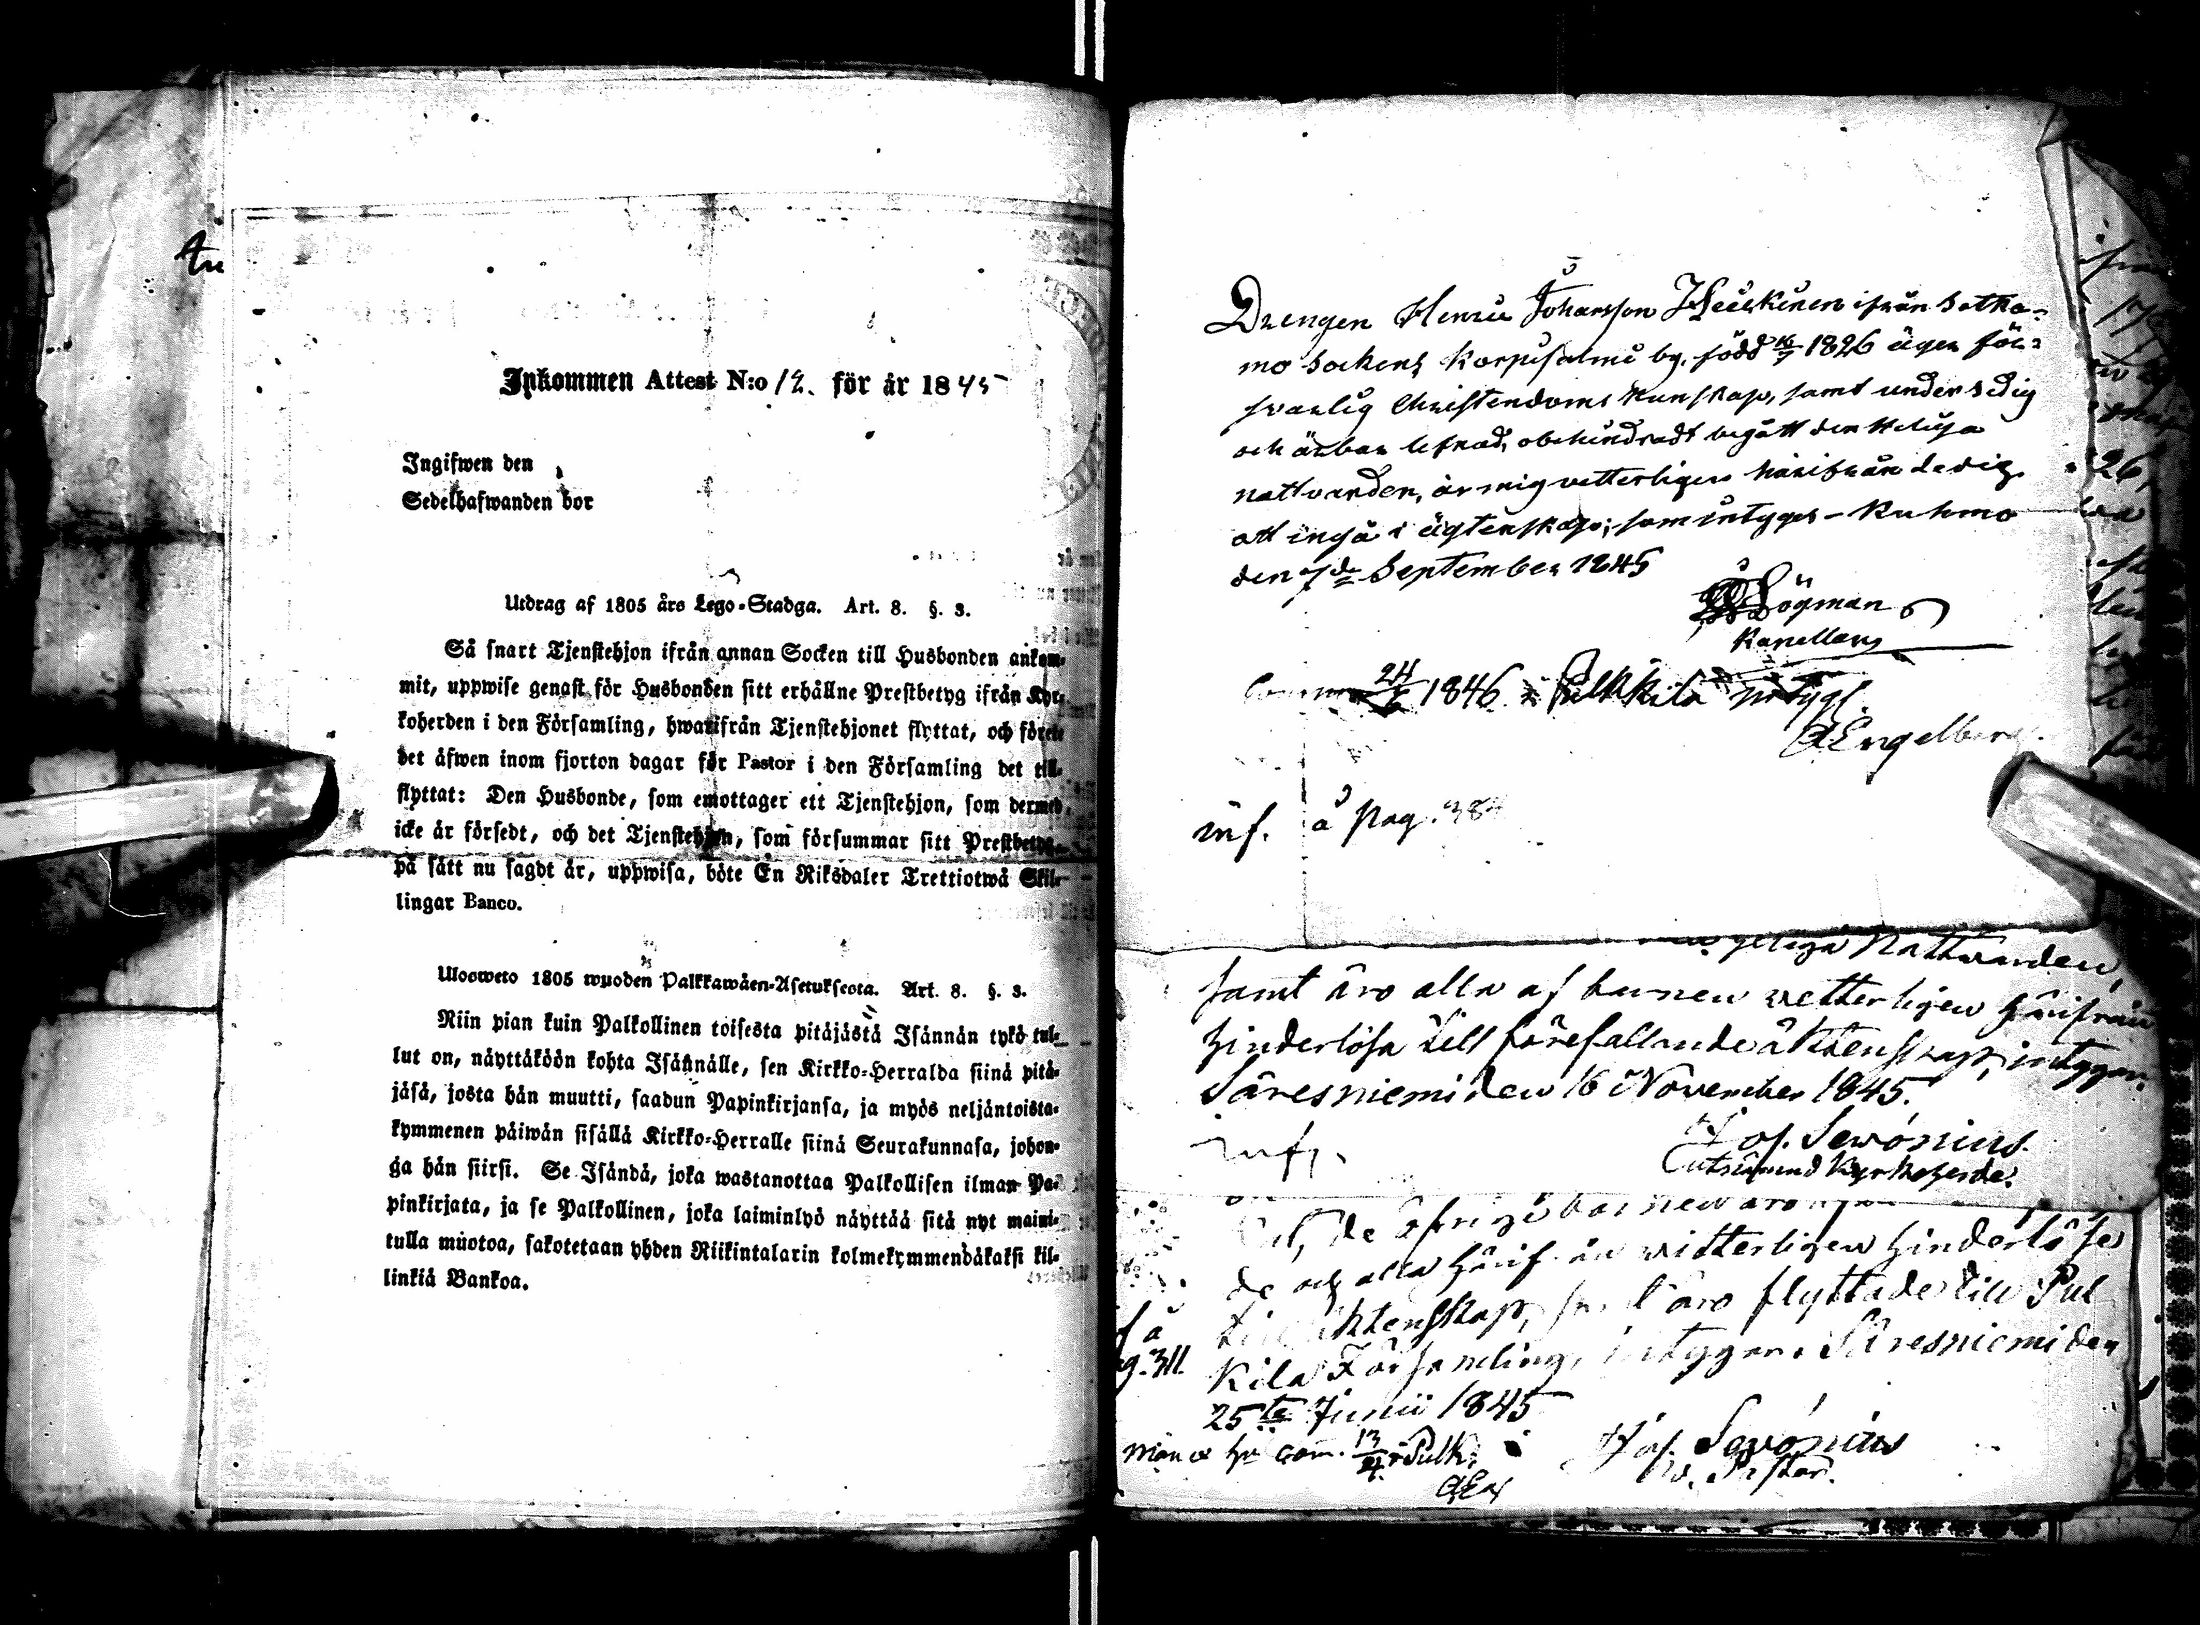 Inkommen Attest N:o 12. för år 1845
Ingifwen den
Sedelhafwanden bor
Utdrag af 1805 års Lego-Stadga. Art. 8. §. 3.
Så snart Tjenstehjon ifrån annan Socken till Husbonden ankom-
mit, uppwise genast för Husbonden sitt erhållne Prestbetyg ifrån Kyr-
koherden i den Församling, hwarifrån Tjenstehjonet flyttat, och förete
det äfwen inom fjorton dagar för Pastor i den Församling det till-
flyttat: Den Husbonde, som emottager ett Tjenstehjon, som dermed
icke är försedt, och det Tjenstehjon, som försummar sitt Prestbetyg
på sätt nu sagdt är, uppwisa, böte En Riksdaler Trettiotwå Skil-
lingar Banco.
Ulosweto 1805 wuoden Palkkawäen-Asetuksesta. Art. 8. §. 3.
Niin pian kuin Palkollinen toisesta pitäjästä Isännän tykö tul-
lut on, näyttäköön kohta Isännälle, sen Kirkko-Herralda siinä pitä-
jäsä, josta hän muutti, saadun Papinkirjansa, ja myös neljäntoista-
kymmenen päiwän sisällä Kirkko-Herralle siinä Seurakunnasa, johon-
ga hän siirsi. Se Isändä, joka wastanottaa Palkollisen ilman Pa-
pinkirjata, ja se Palkollinen, joka laiminlyö näyttää sitä nyt maini-
tulla muotoa, sakotetaan yhden Riikintalarin kolmekymmendäkaksi kil-
linkiä Bankoa.
Drengen Henric Johansson Heiskinen ifrån Sotka-
mo Sockens Korpisalmi by, född 16/7 1826 äger för-
svarlig Christendoms kunskap, samt undersedig
och ärbar lefnad, obehindradt begått den Heliga
nattvarden, är mig vetterligen härifrån ledig
att ingå i ägtenskap; som intygas - Kuhmo
den 7de September 1845
Högman
Kapellans
24/6 1846 i Pulkkila intygl.
Engelberg
inf. å pag. 384
Nattvarden,
samt äro alla af barnen vetterligen härifrån
hinderlösa till förefallande äktenskap, intygar.
Säresniemi den 16 November 1845.
Joh. Sewónius.
Utnämnd Kyrkoherde.
inf.
de öfrige barnen äro
de och alla härifrån vitterligen hinderlöse
till äktenskap, samt äro flyttade till Pul
kila Församling, intygar. Säresniemi den
25te Junii 1845
Joh. Sewónius
v. Pastor.
f å
g. 311.
13/4 i Pulk.